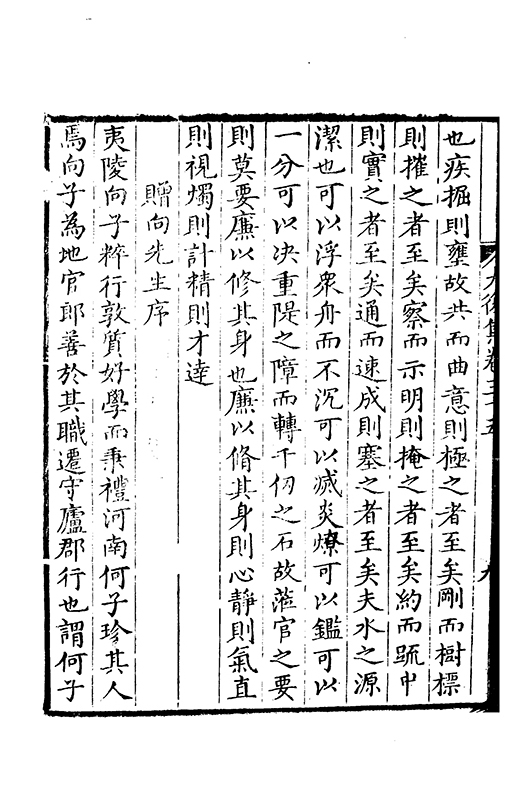 也疾掘則壅故共而曲意則極之者至矣剛而樹標
則摧之者至矣察而示明則掩之者至矣約而䟽中
則實之者至矣通而速成則塞之者至矣夫水之源
潔也可以浮衆舟而不沉可以滅炎燎可以鑑可以
一分可以决重隄之障而轉千仞之石故蒞官之要
則莫要廉以修其身也廉以脩其身則心靜則氣直
則視燭則計精則才達
贈向先生序
夷陵向子粹行敦質好學而秉禮河南何子珍其人
焉向子為地官郎善於其職遷守廬郡行也謂何子
後集卷三十五
九